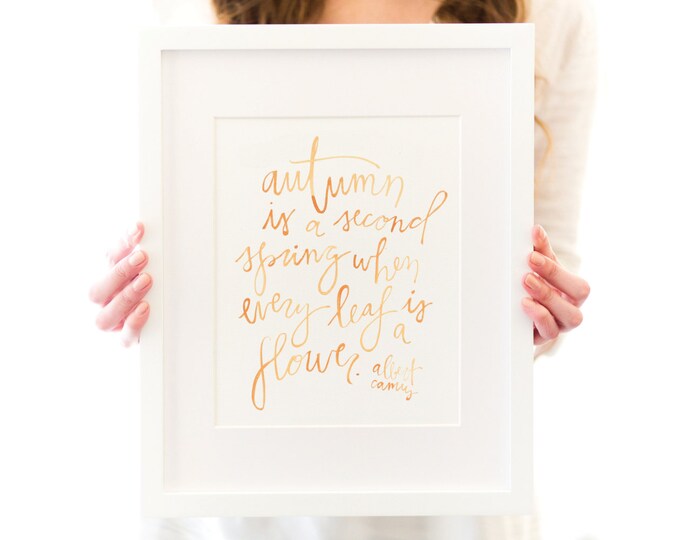 autumn
is a second
spring when
every leaf is
a
flower. albert
camus